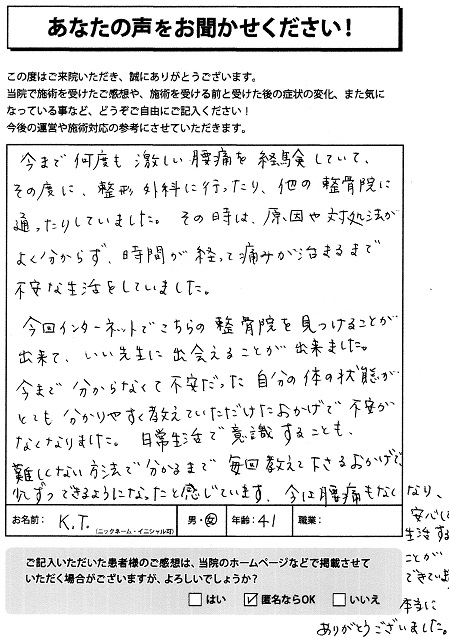 あなたの声をお聞かせください！
この度はご来院いただき、誠にありがとうございます。
当院で施術を受けたご感想や、施術を受ける前と受けた後の症状の変化、また気に
なっている事など、どうぞご自由にご記入ください！
今後の運営や施術対応の参考にさせていただきます。
今まで何度も激しい腰痛を経験していて、
その度に、整形外科に行ったり、他の整骨院に
通ったりしていました。その時は、原因や対処法が
よく分からず、時間が経って痛みが治まるまで
不安な生活をしていました。
今回インターネットでこちらの整骨院を見つけることが
出来て、いい先生に出会えることが出来ました。
今まで分からなくて不安だった自分の体の状態が
とても分かりやすく教えていただけたおかげで不安が
なくなりました。日常生活で意識することも、
難しくない方法で分かるまで毎回教えて下さるおかげで、
れずっできるようになったと感じています。今は腰痛もなくなり、
安心し
生活する
ことが
できてい
本当に
ありがとうございました。
お名前： K.T. (ニックネーム・イニシャル可) 男・女 年齢：41 職業：
ご記入いただいた患者様のご感想は、当院のホームページなどで掲載させて
いただく場合がございますが、よろしいでしょうか？
はい 匿名ならOK いいえ